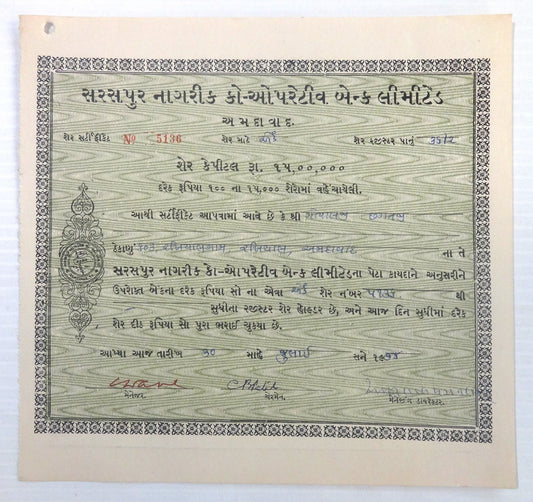 સરસપુર નાગરીક કો-ઓપરેટીવ બેન્ક લીમીટેડ
અમદાવાદ.
શેર સર્ટીફીકેટ № 5136 શેર માટે શેર રજીસ્ટર પાનું 35/2
શેર કેપીટલ રૂા. ૧૫,૦૦,૦૦૦
દરેક રૂપિયા ૧૦૦ ના ૧૫,૦૦૦ શેરોમાં વહેંચાયેલી.
આથી સર્ટીફીકેટ આપવામાં આવે છે કે શ્રી
ઠેકાણું ૧૦૩, રખિયાલગામ, રખિયાલ, અમદાવાદ ના તે
સરસપુર નાગરીક કો-ઓપરેટીવ બેન્ક લીમીટેડના પેટા કાયદાને અનુસરીને
ઉપરોક્ત બેંકના દરેક રૂપિયા સો ના એવા શેર નંબર ૫૧૩૬ થી
સુધીના રજીસ્ટર શેર હોલ્ડર છે, અને આજ દિન સુધીમાં દરેક
શેર દીઠ રૂપિયા સો પુરા ભરાઈ ચુક્યા છે.
આપ્યા આજ તારીખ ૩૦ માહે જુલાઈ સને ૧૯૭૪
મેનેજર. ચેરમેન. મેનેજીંગ ડાયરેક્ટર.